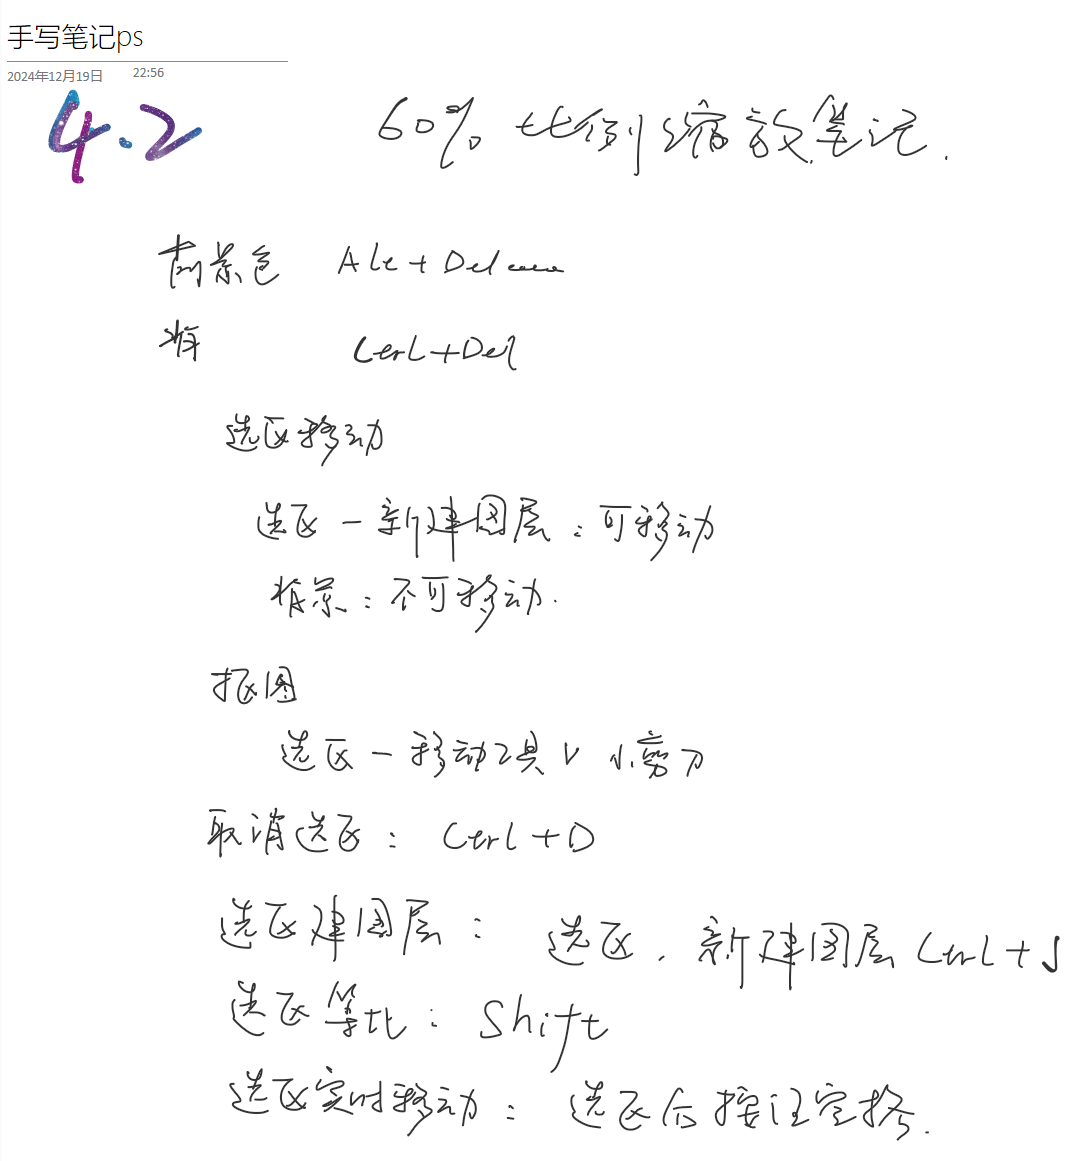 手写笔记ps
2024年12月19日 22:56
4.2 60% 比例缩放笔记.
前景色 Alt+Del
背 Ctrl+Del
选区移动
选区—新建图层：可移动
背景：不可移动.
抠图
选区—移动工具V 小剪刀
取消选区：Ctrl+D
选区建图层：选区，新建图层 Ctrl+J
选区等比：Shift
选区实时移动：选区后按住空格.